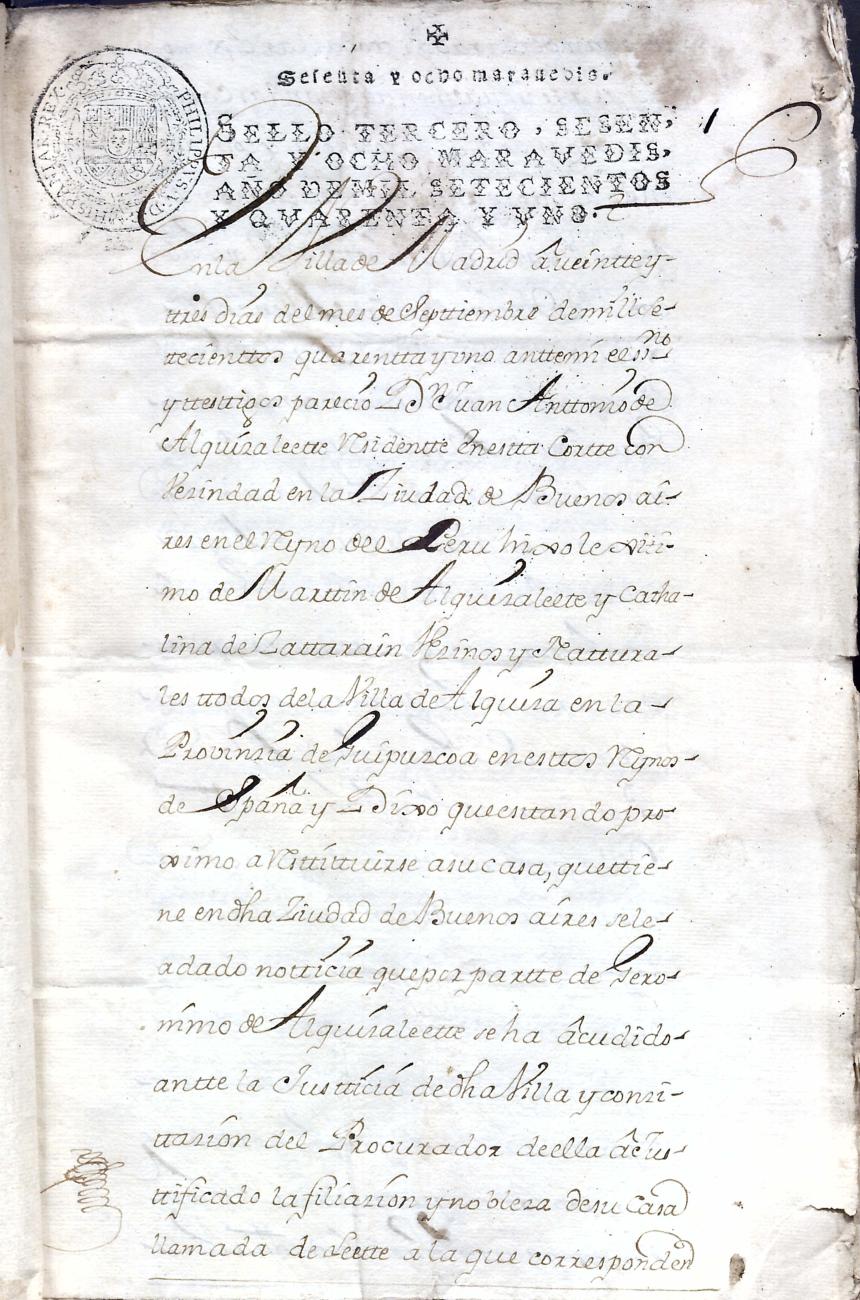 Sesenta y ocho maravedis.
SELLO TERCERO, SESEN,
TA Y OCHO MARAVEDIS,
AÑO DE MIL SETECIENTOS
Y QVARENTA Y VNO.
1
PHILIPPUS V D G HISPANIAR REX
En la Villa de Madrid â veintte y
ttres dias del mes de Septtiembre de mill se-
tecienttos quarentta y uno antte mi el ssno
y ttesttigos pareciò Dn Juan Anttonio de
Alquiraleette Residentte en estta Cortte con
Vezindad en la Ziudad de Buenos ai-
res en el Reyno del Peru hixo lexiti-
mo de Marttin de Alquiraleete y Catha-
lina de Zattarain Vezinos y Nattura-
les ttodos de la Villa de Alquiza en la
Provinzia de Guipuzcoa en esttos Reynos
de España y Dixo que esttando pro-
ximo a Resttittuirse a su casa, que ttie-
ne en dha Ziudad de Buenos aires se le
a dado notticia que por partte de Gero-
nimo de Alquiraleette se ha âcudido
antte la Justticia de dha Villa y con zi-
ttazion del Procurador de ella â Jus-
ttificado la filiazion y nobleza de su Casa
llamada de Leette a la que corresponden